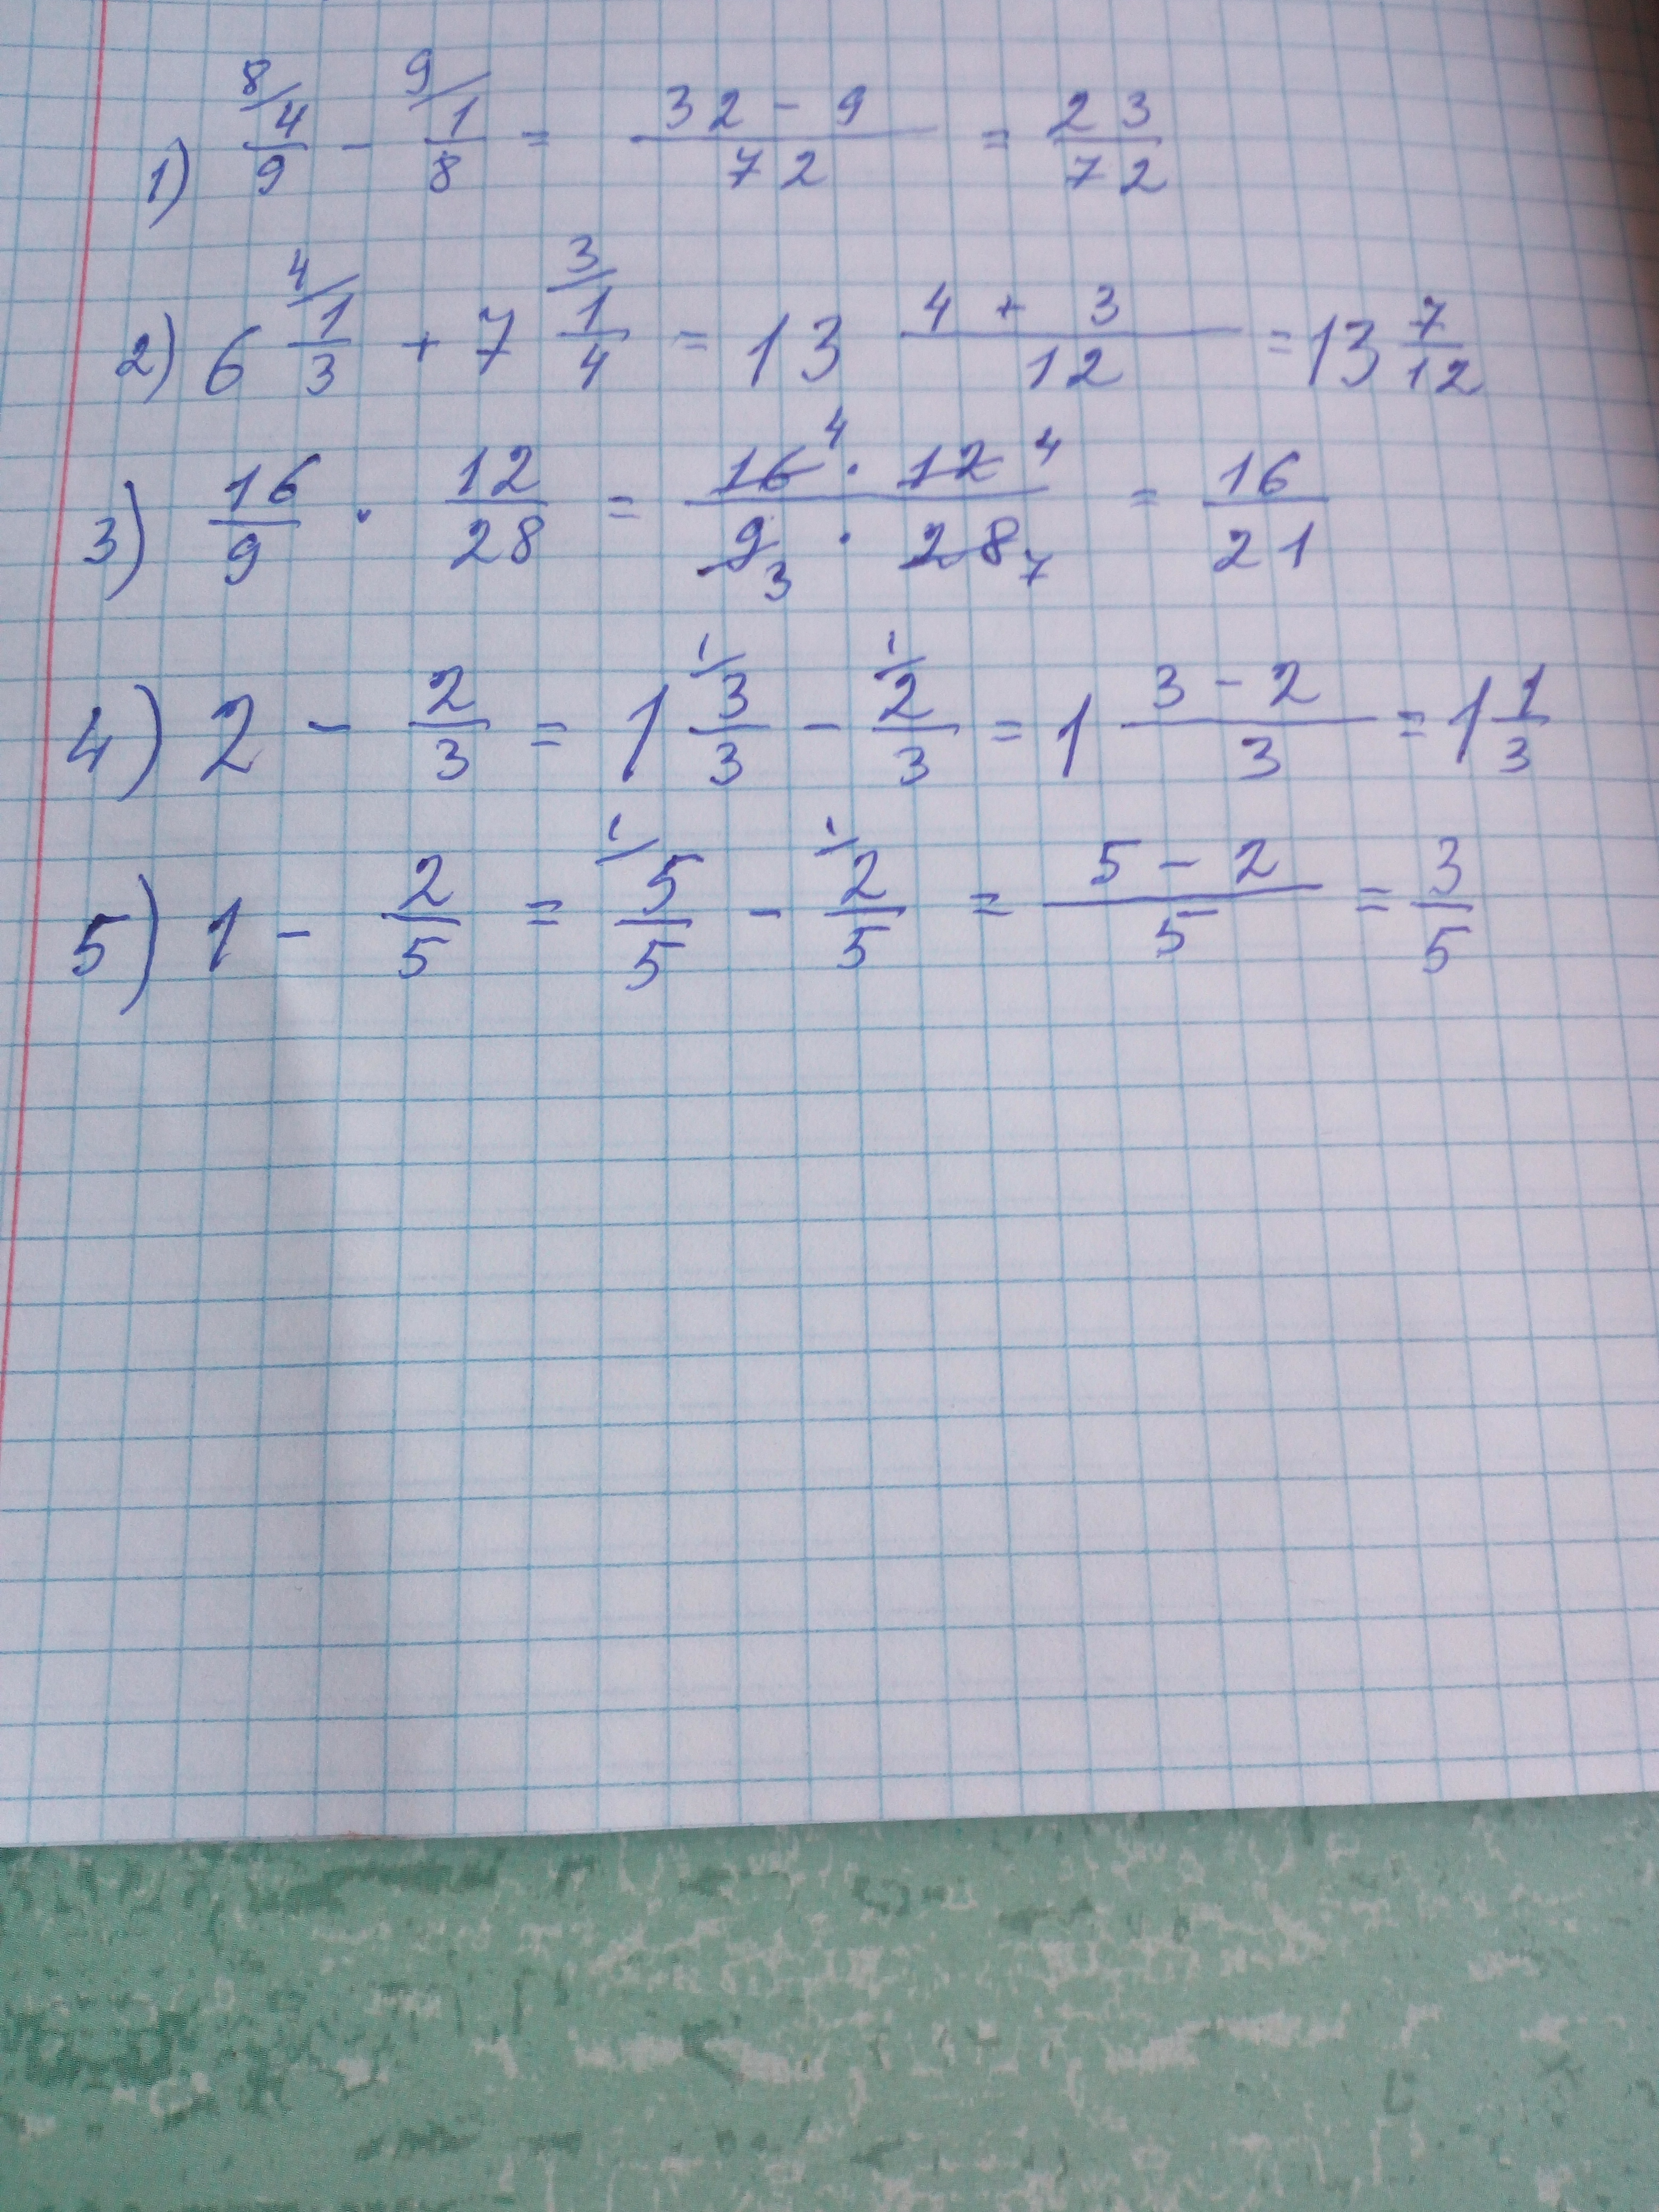 1) 8/ 4/9 - 9/ 1/8 = 32 - 9/72 = 23/72
2) 6 4/ 1/3 + 7 3/ 1/4 = 13 4 + 3/12 = 13 7/12
3) 16/9 · 12/28 = 16 4 · 12 4/9 3 · 28 7 = 16/21
4) 2 - 2/3 = 1 1/ 3/3 - 1/ 2/3 = 1 3 - 2/3 = 1 1/3
5) 1 - 2/5 = 1/ 5/5 - 1/ 2/5 = 5 - 2/5 = 3/5